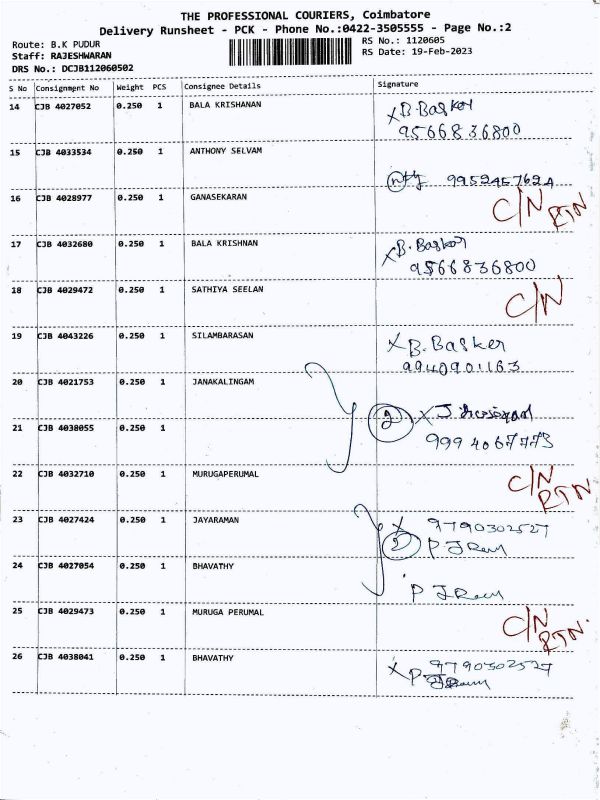 THE PROFESSIONAL COURIERS, Coimbatore
Delivery Runsheet - PCK - Phone No.:0422-3505555 - Page No.:2
Route: B.K PUDUR
RS No.: 1120605
Staff: RAJESHWARAN
RS Date: 19-Feb-2023
DRS No.: DCJB112060502
S No Consignment No Weight PCS Consignee Details Signature
14 CJB 4027052 0.250 1 BALA KRISHANAN X B. Basker
9566836800
15 CJB 4033534 0.250 1 ANTHONY SELVAM
16 CJB 4028977 0.250 1 GANASEKARAN C/N RTN
17 CJB 4032680 0.250 1 BALA KRISHNAN X B. Basker
9566836800
18 CJB 4029472 0.250 1 SATHIYA SEELAN C/N
19 CJB 4043226 0.250 1 SILAMBARASAN X B. Basker
9940901163
20 CJB 4021753 0.250 1 JANAKALINGAM
2 X J
21 CJB 4038055 0.250 1 9994067773
22 CJB 4032710 0.250 1 MURUGAPERUMAL C/N RTN
23 CJB 4027424 0.250 1 JAYARAMAN X 9790302527
2 P J Ram
24 CJB 4027054 0.250 1 BHAVATHY
P J Ram
25 CJB 4029473 0.250 1 MURUGA PERUMAL C/N RTN.
26 CJB 4038041 0.250 1 BHAVATHY X 9790302527
P J Ram